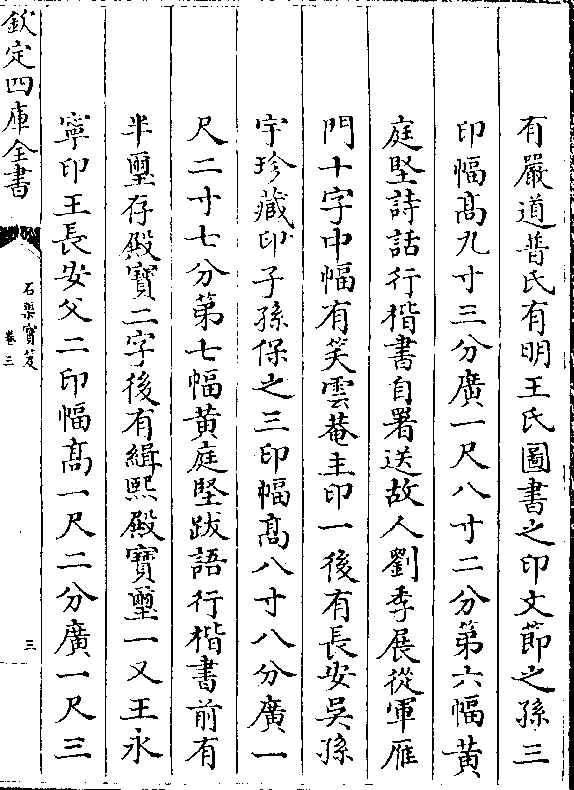 有嚴道普氏有明王氏圖書之印文節之孫三
印幅高九寸三分廣一尺八寸二分第六幅黄
庭堅詩話行楷書自署送故人劉季展從軍雁
門十字中幅有笑雲菴主印一後有長安吳孫
宇珍藏印子孫保之三印幅高八寸八分廣一
尺二寸七分第七幅黄庭堅跋語行楷書前有
半璽存殿寶二字後有緝熙殿寶璽一又王永
寧印王長安父二印幅高一尺二分廣一尺三
欽定四庫全書
石渠寶笈
卷三
三